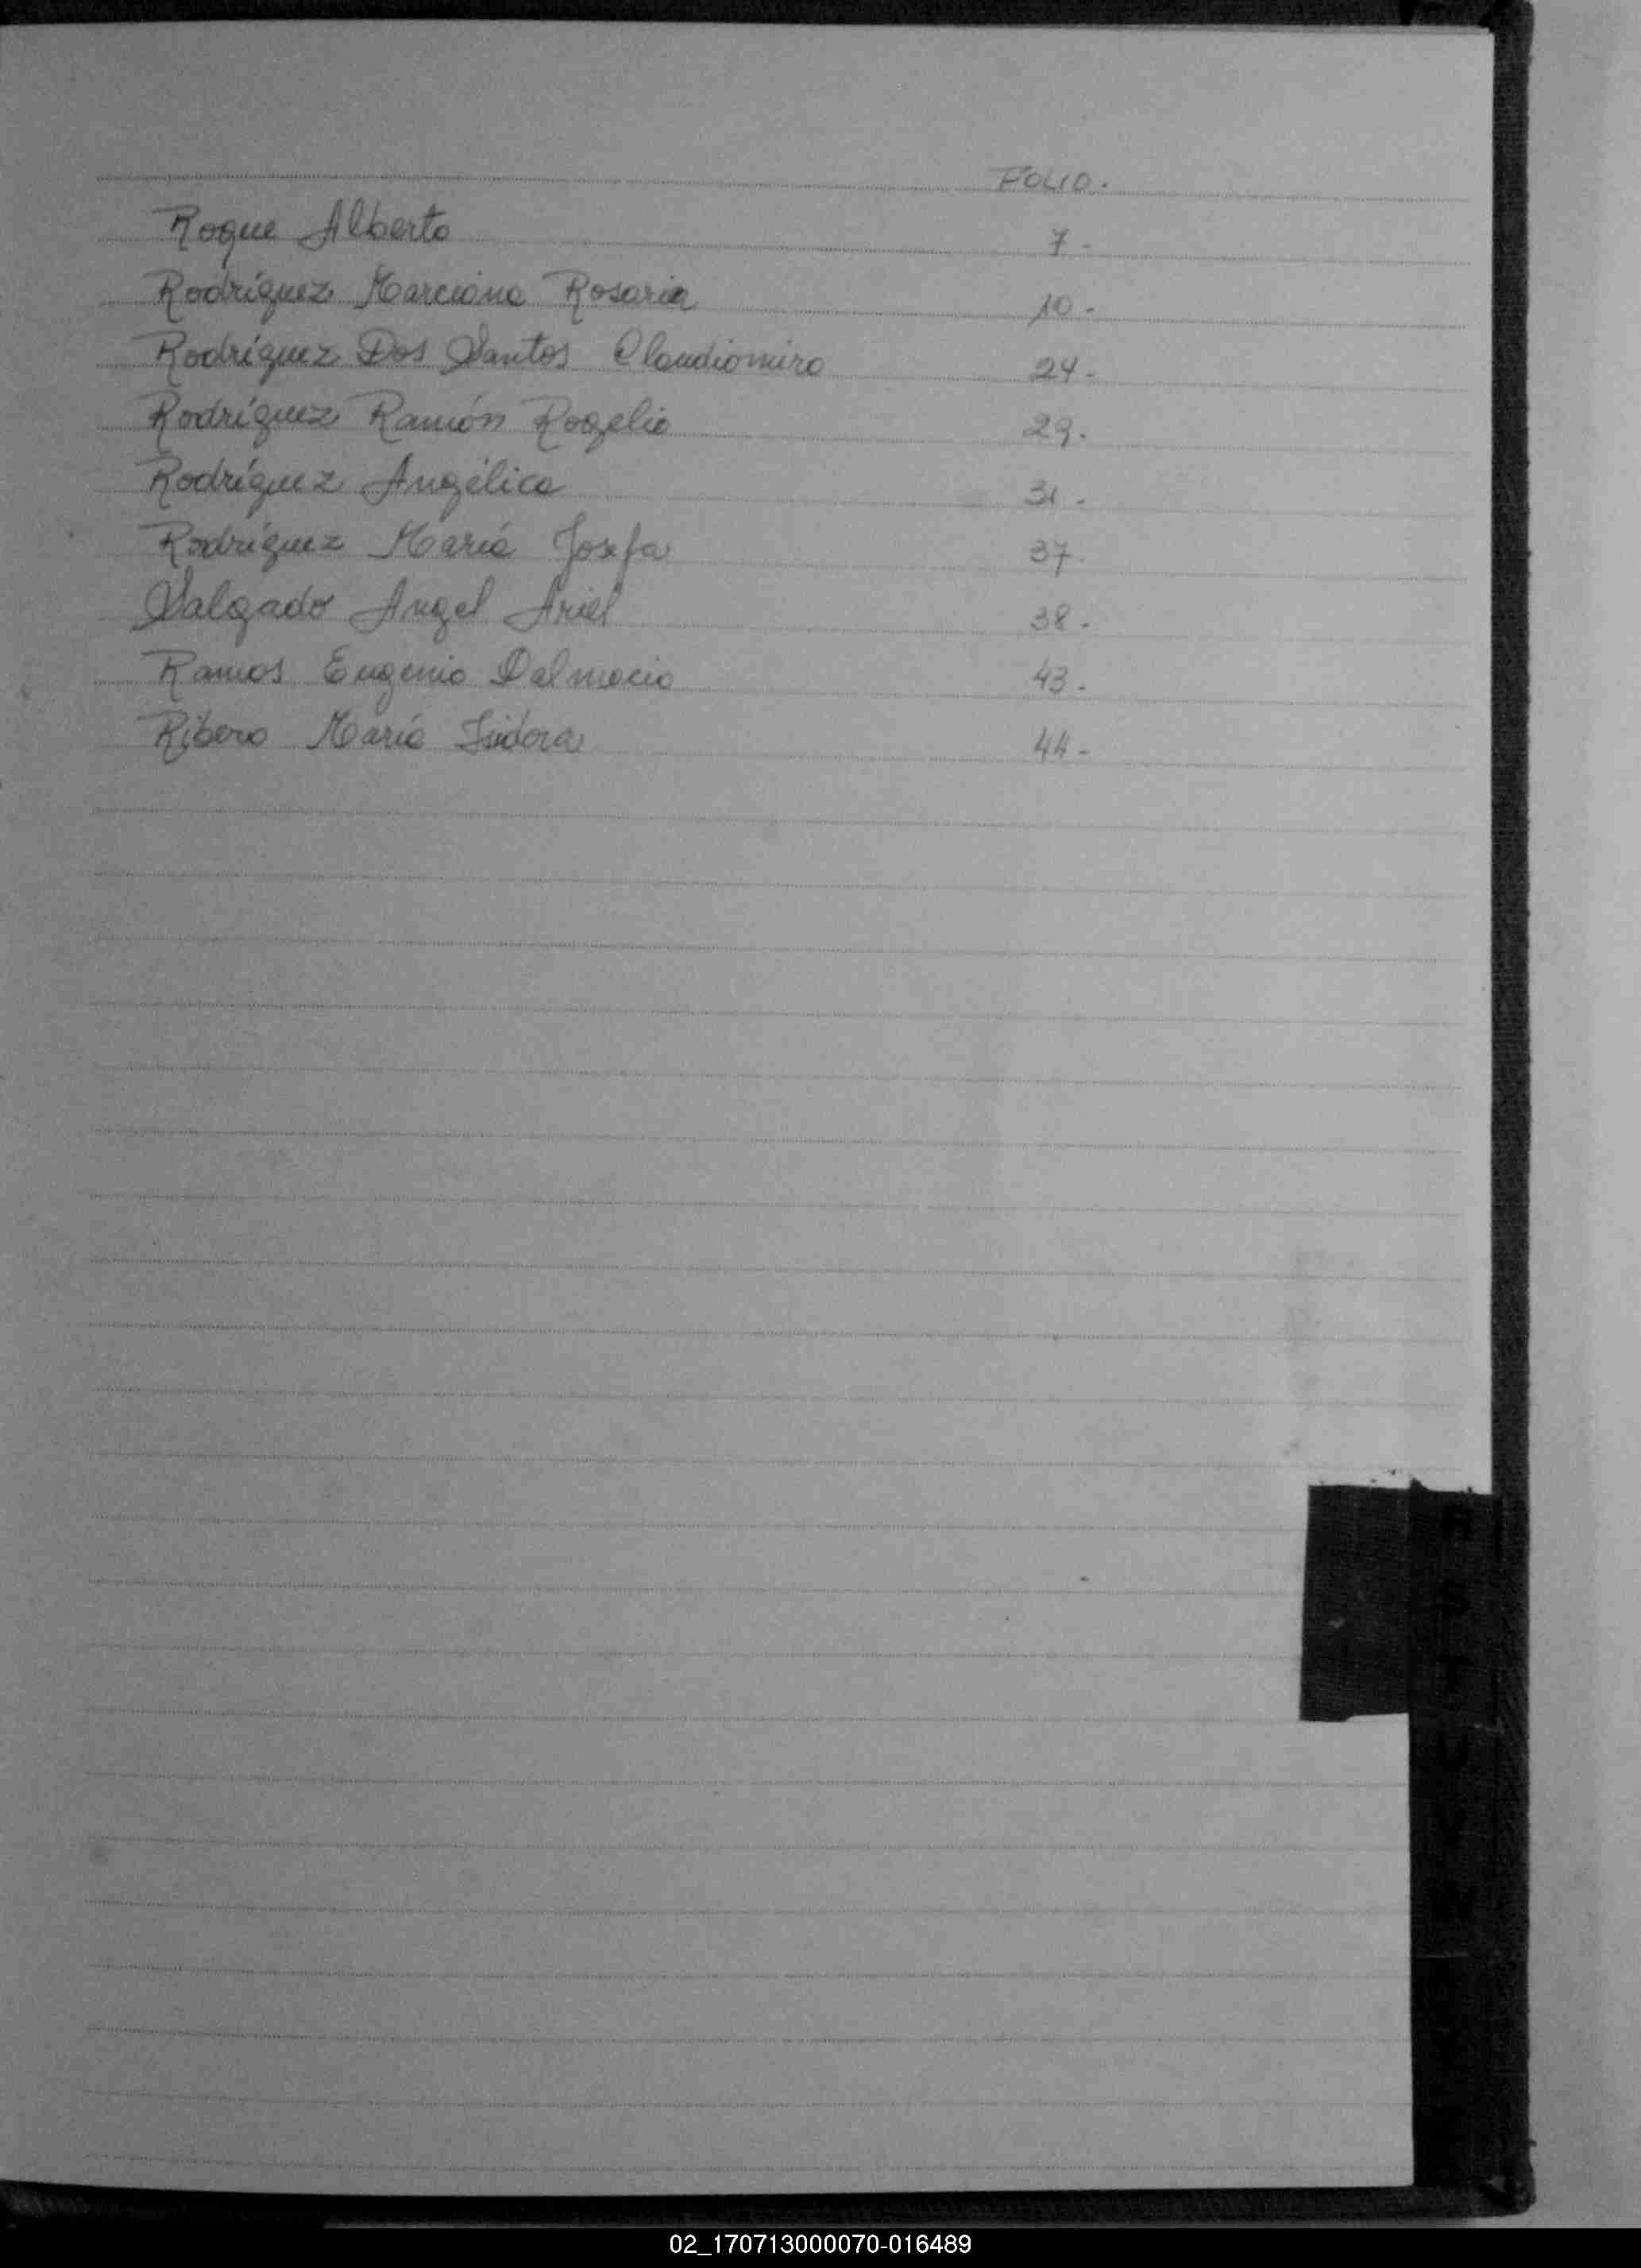 FOLIO.
Roque Alberto 7-
Rodríguez Marciana Rosaria 10-
Rodríguez Dos Santos Claudiomiro 24-
Rodríguez Ramón Rogelio 29.
Rodríguez Angélica 31-
Rodríguez María Josefa 37.
Salgado Angel Ariel 38.
Ramos Eugenio Dalmacio 43.
Ribero María Isidora 44-
R
S
T
U
V
W
02_170713000070-016489